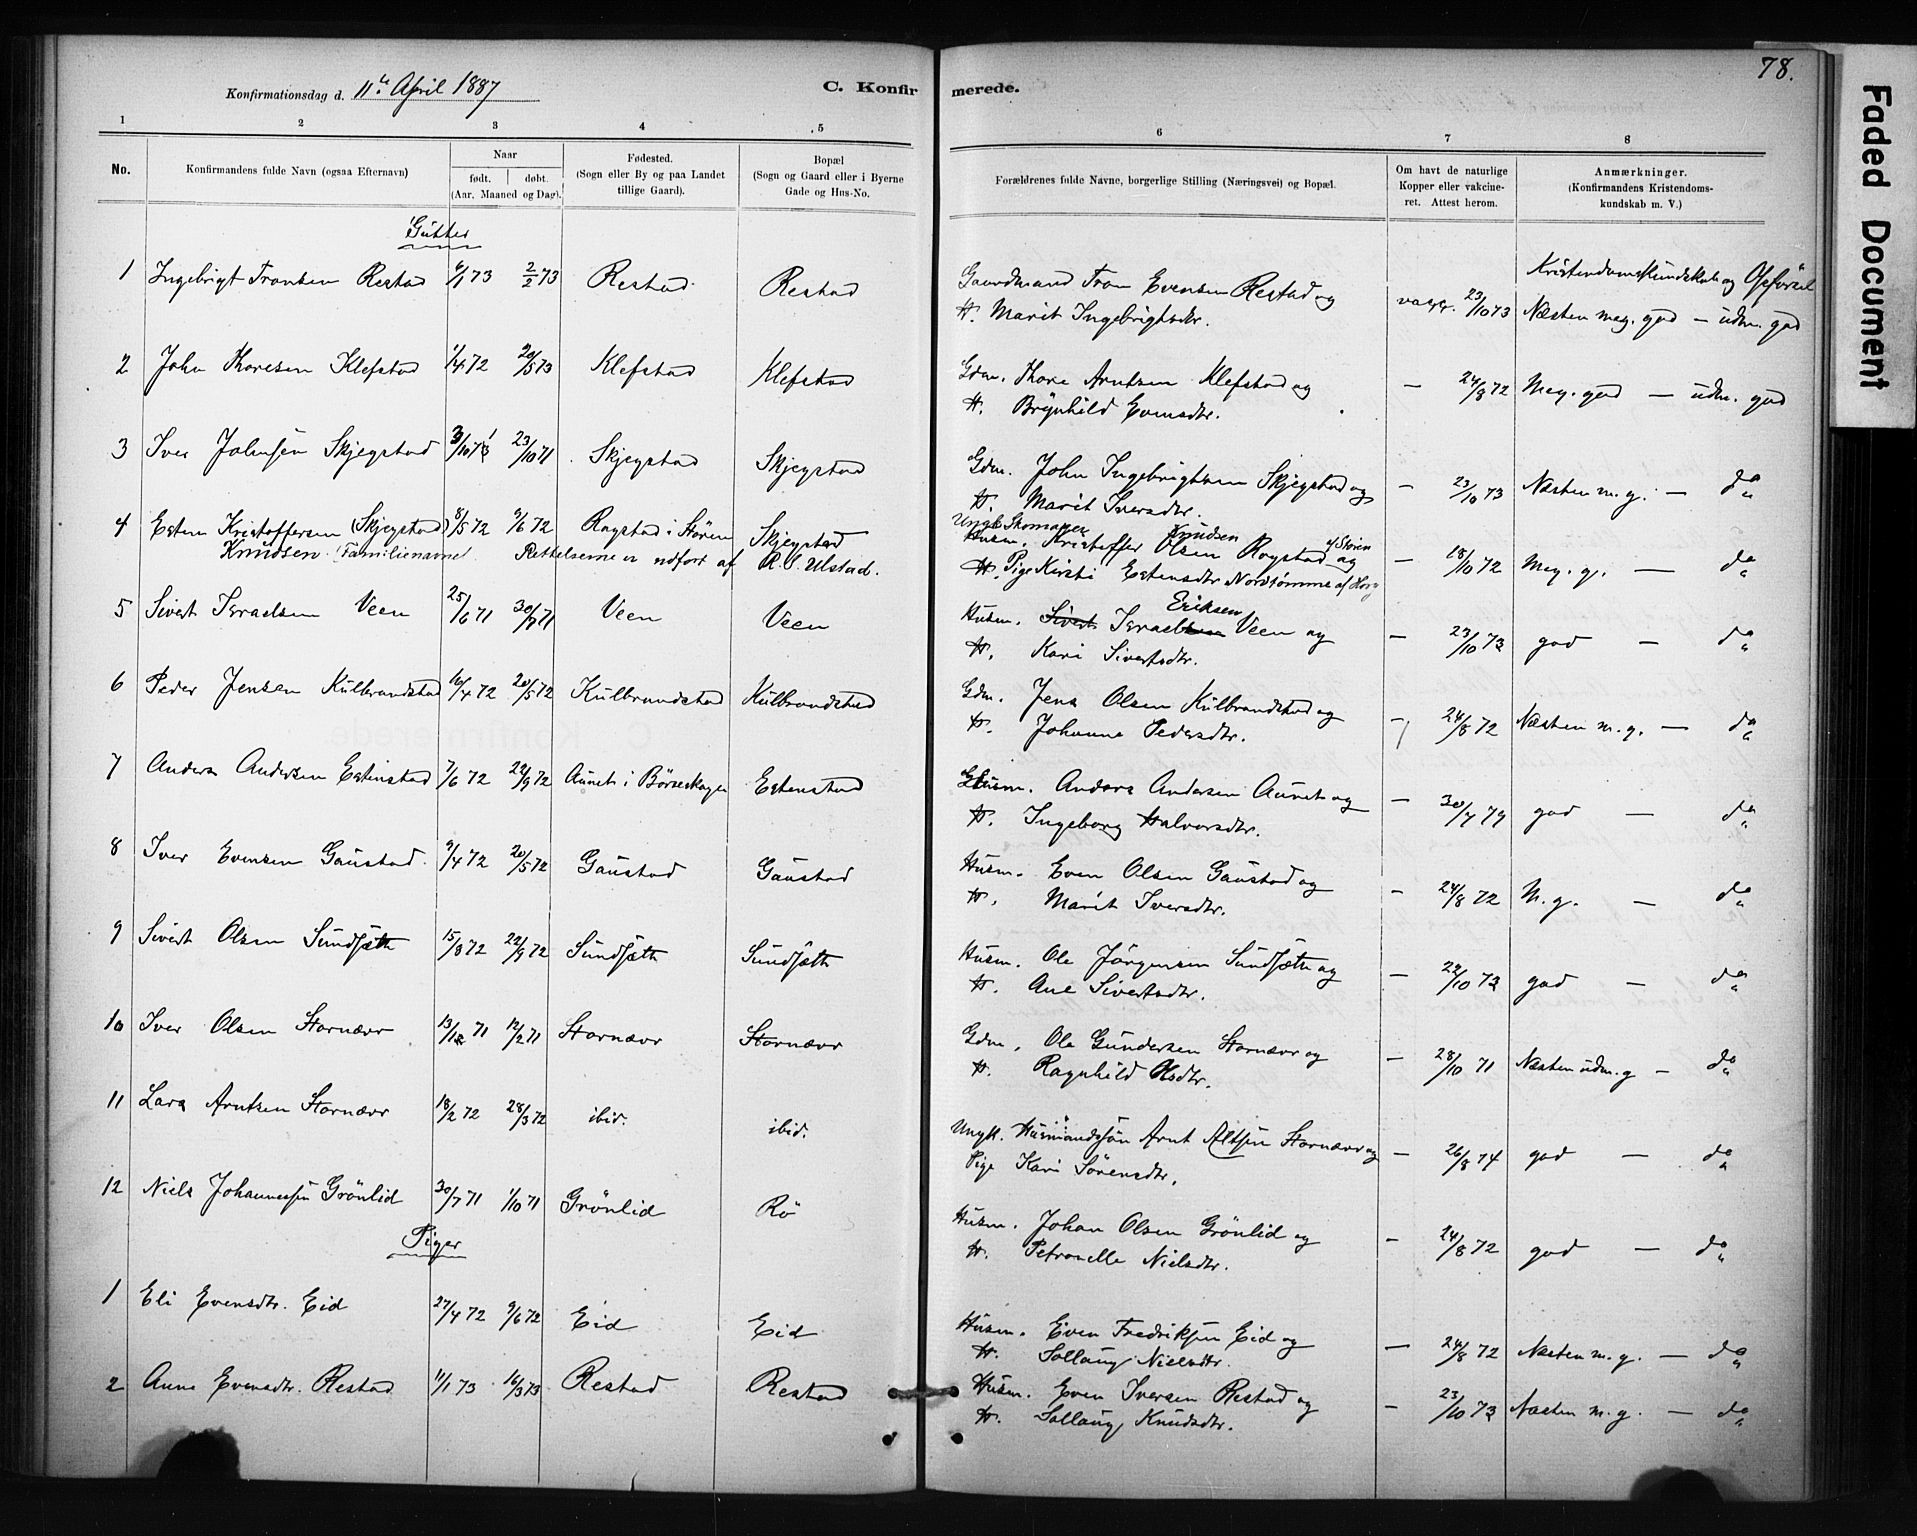 78.
Faded Document
Konfirmationsdag d. 11te April 1887
C. Konfirmerede.
1 2 3 4 5 6 7 8
No. Konfirmandens fulde Navn (ogsaa Efternavn) Naar født. døbt. (Aar, Maaned og Dag). Fødested. (Sogn eller By og paa Landet tillige Gaard). Bopæl (Sogn og Gaard eller i Byerne Gade og Hus-No. Forældrenes fulde Navne, borgerlige Stilling (Næringsvei) og Bopæl. Om havt de naturlige Kopper eller vakcineret. Attest herom. Anmærkninger. (Konfirmandens Kristendomskundskab m. V.)
Gutter
Kristendomskundskab og Opførsel
1 Ingebrigt Tronsen Restad 6/1 73 2/2 73 Restad Restad Gaardmand Tron Evensen Restad og vacc. 23/10 73 Næsten meg. god — udm. god
H. Marit Ingebrigtsdtr.
2 John Thoresen Klefstad 1/4 72 20/5 73 Klefstad Klefstad Gdm. Thore Arntsen Klefstad og — 24/8 72 Meg. god — udm. god
H. Brynhild Evensdtr.
3 Iver Johnsen Skjegstad 3/10 71 23/10 71 Skjegstad Skjegstad Gdm. John Ingebrigtsen Skjegstad og — 23/10 73 Næsten m. g. — do
H. Marit Iversdtr.
4 Esten Kristoffersen (Skjegstad) 8/5 72 9/6 72 Rogstad i Støren Skjegstad Ungk. Skomager Knudsen af Støren
Husm. Kristoffer Olsen Rogstad og — 18/10 72 Meg. g. — do
Knudsen (Familienavnet Rettelserne er udført af R. C. Ulstad. H. Pige Kirsti Estensdtr Nordtømme af Horg
5 Sivert Israelsen Veen 25/6 71 30/7 71 Veen Veen Husm. Sivert Israelsen Eriksen Veen og — 23/10 73 god — do
H. Kari Sivertsdtr.
6 Peder Jensen Kulbrandstad 16/4 72 20/5 72 Kulbrandstad Kulbrandstad Gdm. Jens Olsen Kulbrandstad og — 24/8 72 Næsten m. g. — do
H. Johanna Pedersdtr.
7 Anders Andersen Estenstad 7/6 72 22/9 72 Aunet i Børseskogn Estenstad Husm. Anders Andersen Aunet og — 30/7 79 god — do
H. Ingeborg Halvorsdtr.
8 Iver Evensen Gaustad 9/4 72 20/5 72 Gaustad Gaustad Husm. Even Olsen Gaustad og — 24/8 72 M. g. — do
H. Marit Iversdtr.
9 Sivert Olsen Sundsæth 15/8 72 22/9 72 Sundsæth Sundsæth Husm. Ole Jørgensen Sundsæth og — 22/10 73 god — do
H. Ane Sivertsdtr.
10 Iver Olsen Stornævr 13/12 71 12/2 71 Stornævr Stornævr Gdm. Ole Gundersen Stornævr og — 28/10 71 Næsten udm. g — do
H. Ragnhild Olsdtr.
11 Lars Arntsen Stornævr 18/2 72 28/3 72 ibid. ibid. Ungk. Husmandssøn Arnt Altsen Stornævr og — 26/8 74 god — do
Pige Kari Sørensdtr.
12 Niels Johannessen Grønlid 30/7 71 1/10 71 Grønlid Rø Husm. Johan Olsen Grønlid og — 24/8 72 god — do
H. Petronelle Nielsdtr.
Piger
1 Eli Evensdtr. Eid 27/4 72 9/6 72 Eid Eid Husm. Even Fredriksen Eid og — 24/8 72 Næsten m. g. — do
H. Sollaug Nielsdtr.
2 Anne Evensdtr. Restad 11/1 73 16/3 73 Restad Restad Husm. Even Iversen Restad og — 23/10 73 Næsten m. g. — do
H. Sollaug Knudsdtr.